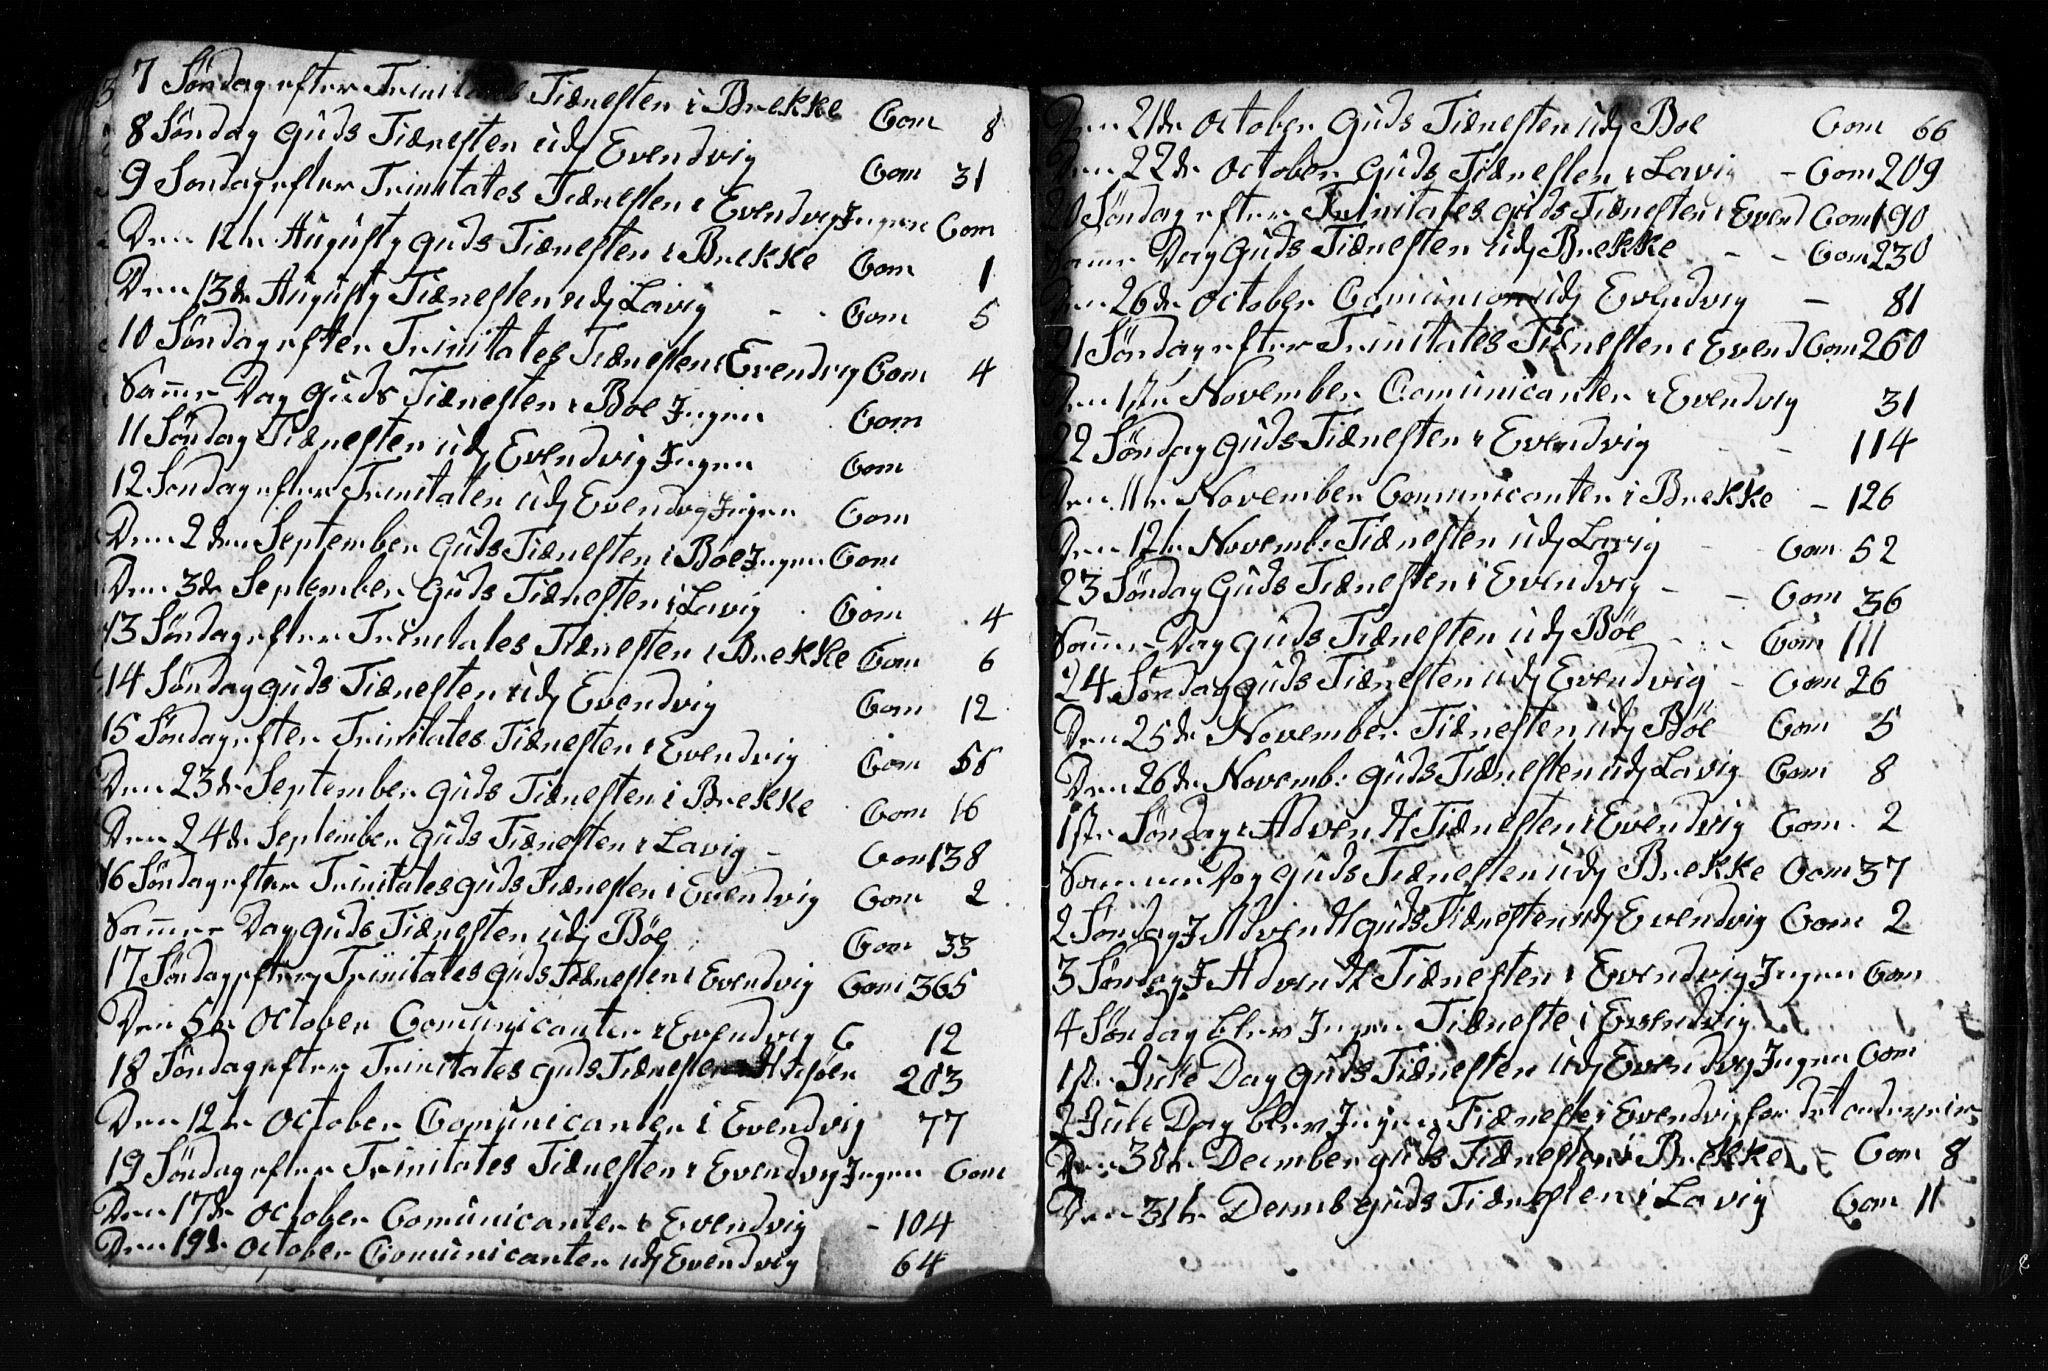 7 Søndag efter Trinitates Tiænesten i Brekke Com 8
8 Søndag Guds Tiænesten udj Evendvig Com 31
9 Søndag efter Trinitates Tiænesten i Evendvig Ingen Com
Den 12te Augusty Guds Tiænesten i Brekke Com 1
Den 13de Augusty Tiænesten udj Lavig - - Com 5
10 Søndag efter Trinitates Tiænesten i Evendvig Com 4
Samme Dag Guds Tiænesten i Boe Ingen Com
11 Søndag Tiænesten udj Evendvig Ingen Com
12 Søndag efter Trinitaten udj Evendvig Ingen Com
Den 2den September Guds Tiænesten i Bøe Ingen Com
Den 3de September Guds Tiænesten i Lavig Com 4
13 Søndag efter Trinitates Tiænesten i Brekke Com 6
14 Søndag Guds Tiænesten udj Evendvig Com 12
15 Søndag efter Trinitates Tiænesten i Evendvig Com 56
Den 23de September Guds Tiænesten i Brekke Com 16
Den 24de September Guds Tiænesten i Lavig - Com 138
16 Søndag efter Trinitates Guds Tiænesten i Evendvig Com 2
Samme Dag Guds Tiænesten udj Bøe Com 33
17 Søndag efter Trinitates Guds Tiænesten i Evendvig Com 365
Den 5te October Comunicanter i Evendvig C 12
18 Søndag efter Trinitates Guds Tiænesten 203
Den 12te October Comunicanter i Evendvig 77
19 Søndag efter Trinitates Tiænesten i Evendvig Ingen Com
Den 17de October Comunicanter i Evendvig - 104
Den 19de October Comunicanter udj Evendvig 64
Den 21de October Guds Tiænesten udj Boe Com 66
Den 22de October Guds Tiænesten i Lavig - Com 209
20 Søndag efter Trinitates Guds Tiænesten i Evend Com 190
Samme Dag Guds Tiænesten udj Brekke - - Com 230
Den 26de October Comunion udj Evendvig - 81
21 Søndag efter Trinitates Tiænesten i Evend Com 260
Den 1ste November Comunicanter i Evendvig 31
22 Søndag Guds Tiænesten i Evendvig - - 114
Den 11te November Comunicanter i Brekke - 126
Den 12te Novemb: Tiænesten udj Lavig - Com 52
23 Søndag Guds Tiænesten i Evendvig - - Com 36
Samme Dag Guds Tiænesten udj Bøe - - Com 111
24 Søndag Guds Tiænesten udj Evendvig - Com 26
Den 25de November Tiænesten udj Bøe Com 5
Den 26de Novemb: Guds Tiænesten udj Lavig Com 8
1ste Søndag i Advendt Tiænesten i Evendvig Com 2
Sammen Dag Guds Tiænesten udj Brekke Com 37
2 Søndag I Advendt Guds Tiænesten udj Evendvig Com 2
3 Søndag I Advendt Tiænesten i Evendvig Ingen Com
4 Søndag blev Ingen Tiæneste i Evendvig
1ste Jule Dag Guds Tiænesten udj Evendvig Ingen Com
2 Jule Dag blev Ingen Tiæneste i Evendvig for det
Den 30te Decmber Guds Tiænesten i Brekke - Com 8
Den 31te Decmb Guds Tiænesten i Lavig Com 11